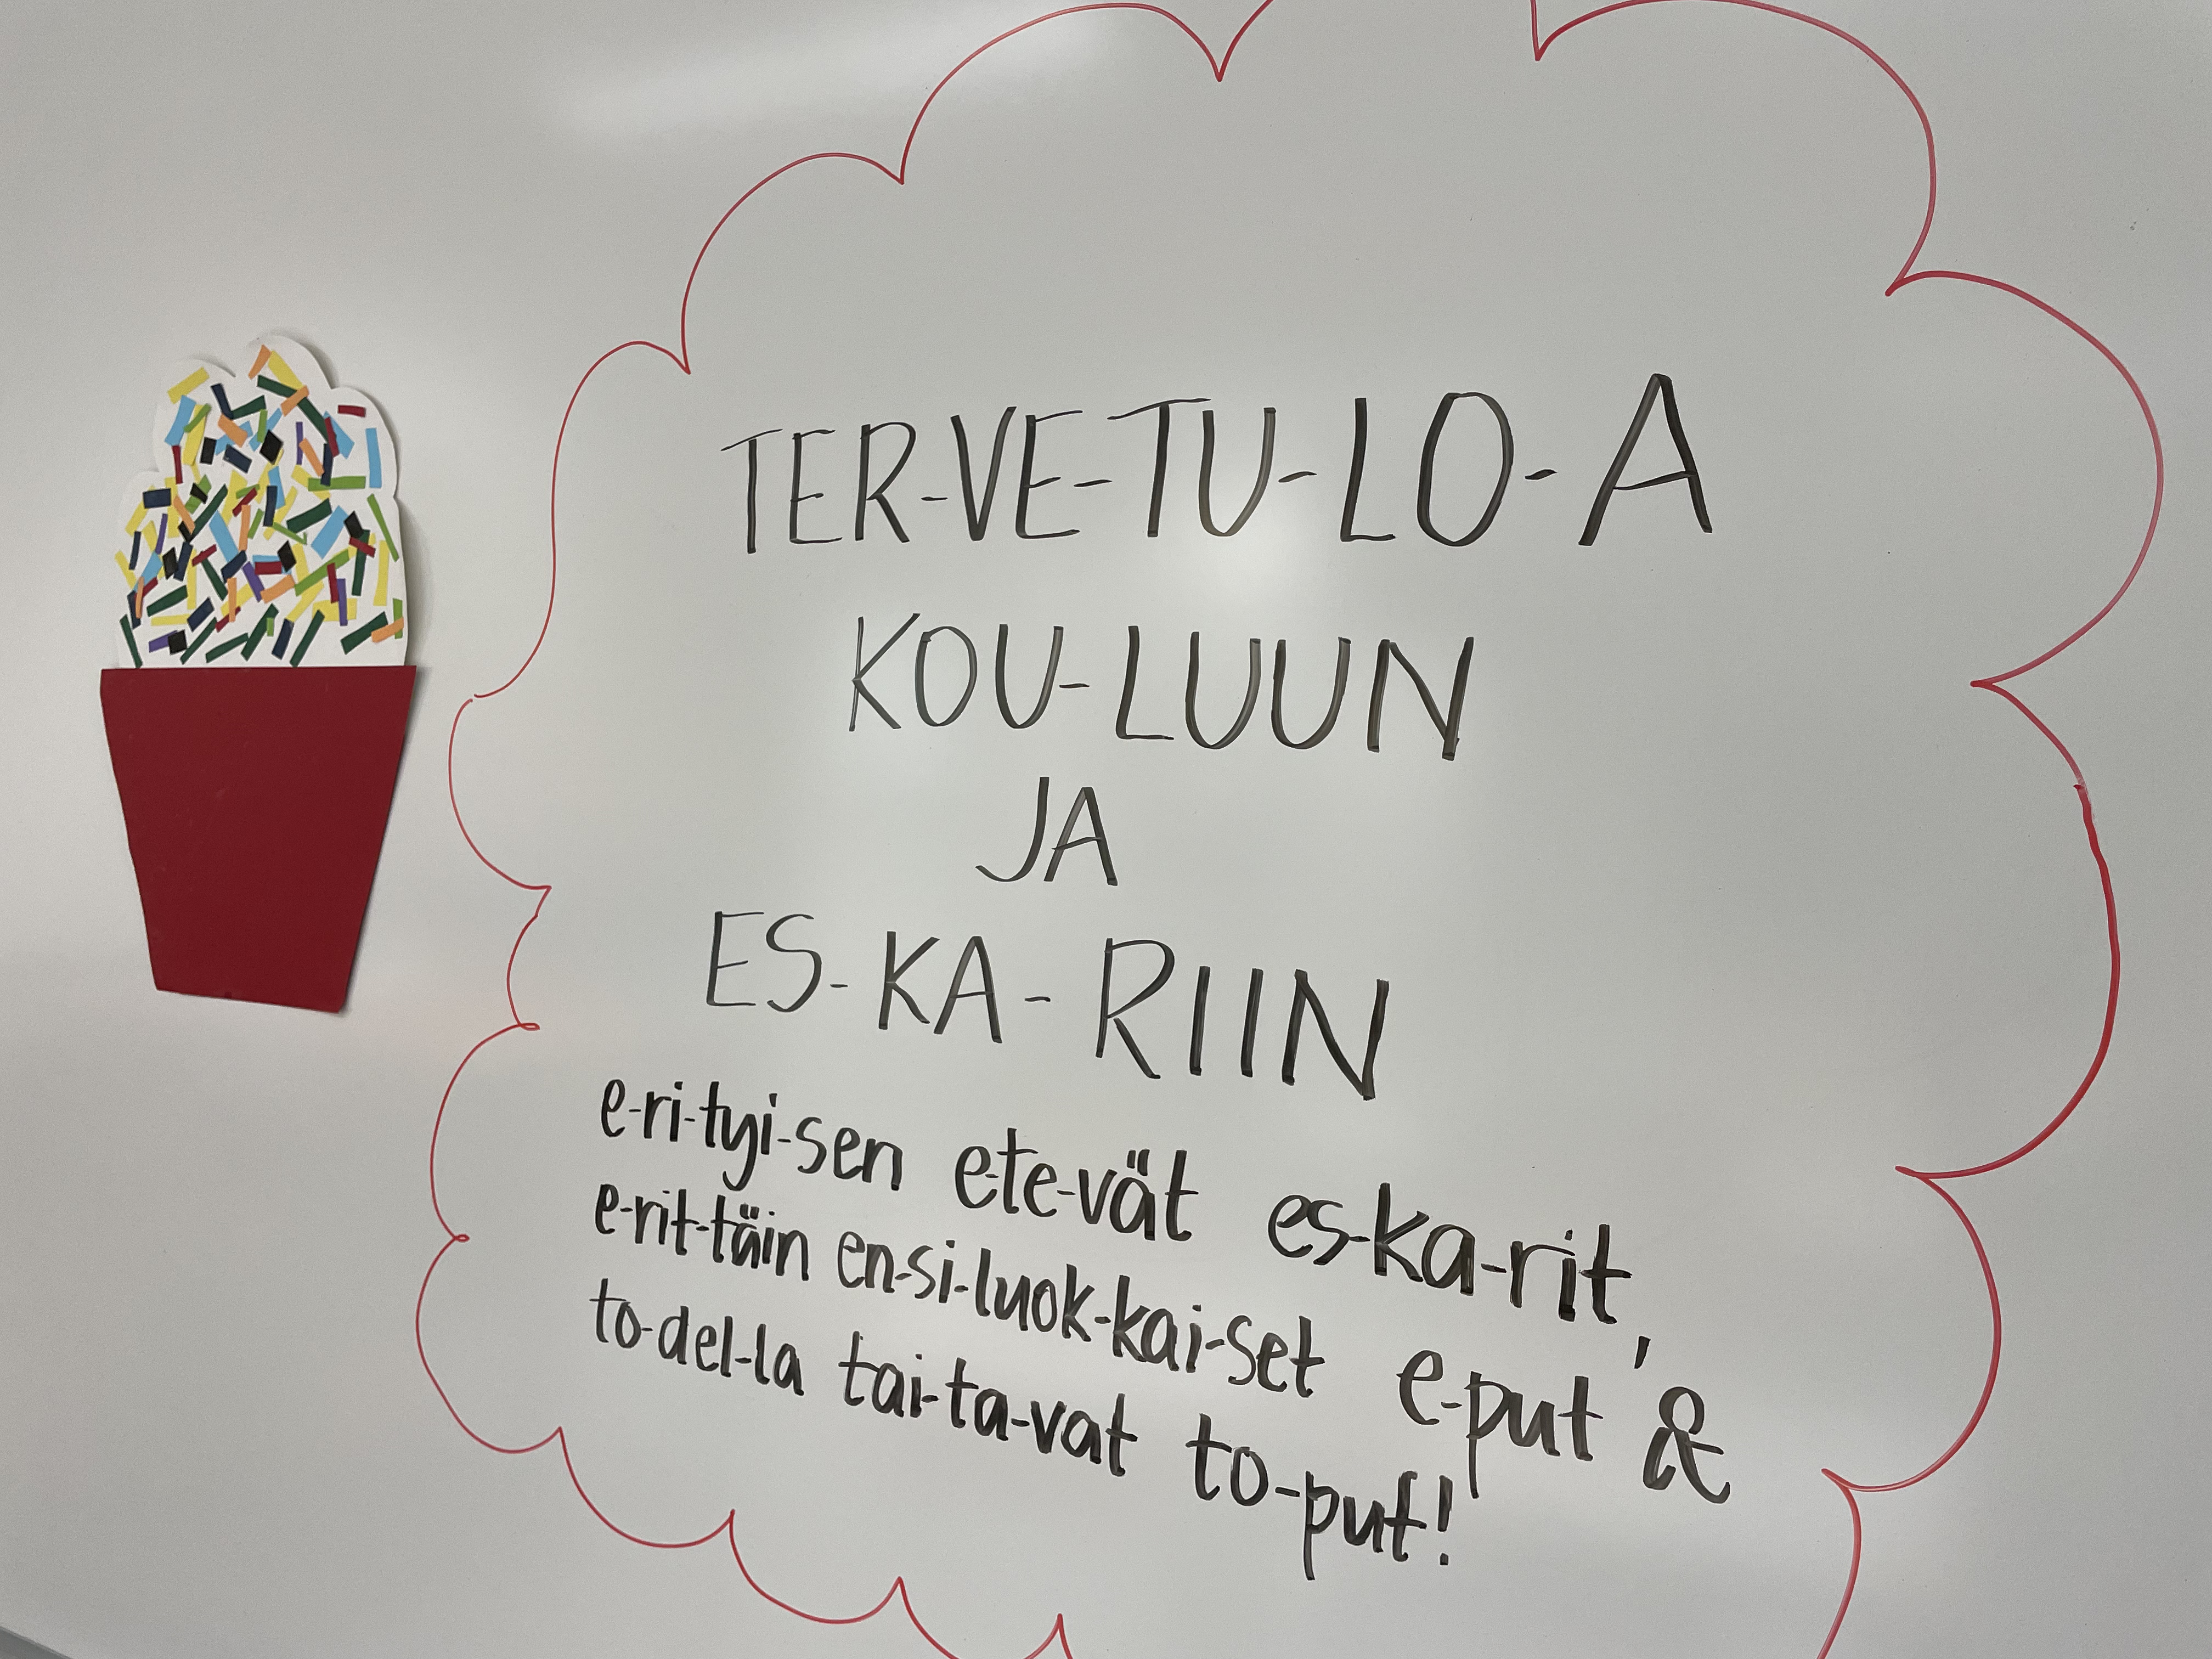 TER-VE-TU-LO-A
KOU-LUUN
JA
ES-KA-RIIN
e-ri-tyi-sen ete-vät es-ka-rit,
e-rit-täin en-si-luok-kai-set e-put &
to-del-la tai-ta-vat to-put!